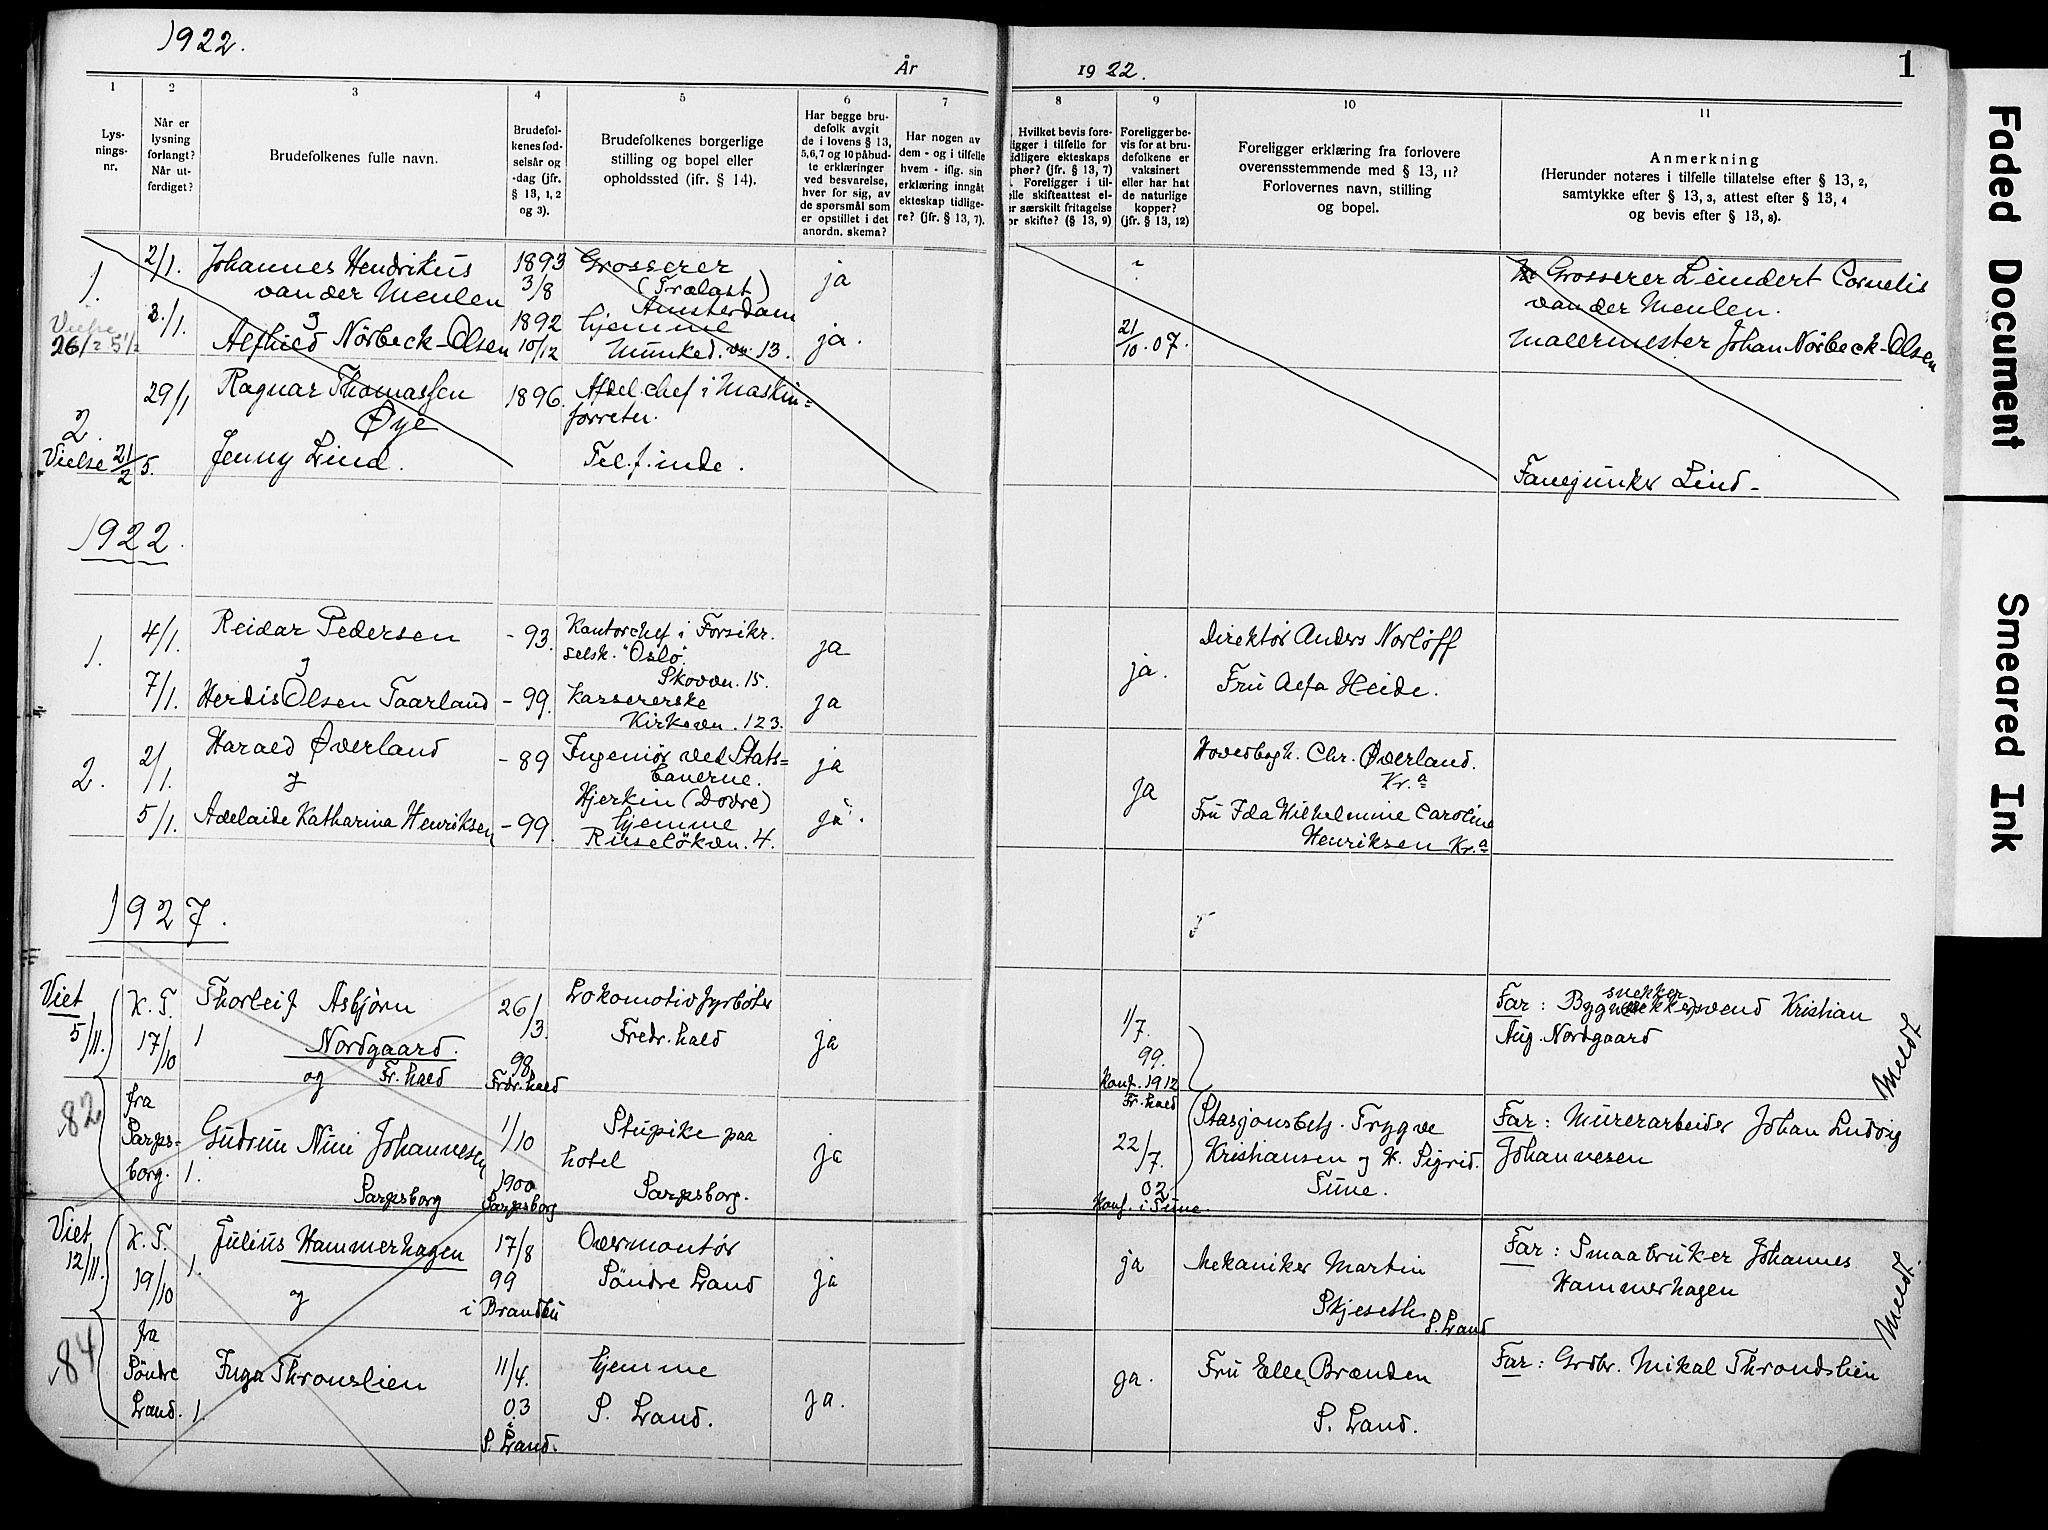 1922.
År
1922.
1
1
2
3
4
5
6
7
8
9
10
11
Lys-
nings-
nr.
Når er
lysning
forlangt?
Når ut-
ferdiget?
Brudefolkenes fulle navn.
Brudefol-
kenes fød-
selsår og
-dag (jfr.
§ 13, 1, 2
og 3).
Brudefolkenes borgerlige
stilling og bopel eller
opholdssted (ifr. § 14).
Har begge bru-
defolk avgit
de i lovens § 13,
5,6,7 og 10 påbud-
te erklæringer
ved besvarelse,
hver for sig, av
de spørsmål som
er opstillet i det
anordn. skema?
Har nogen av
dem - og i tilfelle
hvem - iflg. sin
erklæring inngått
ekteskap tidlige-
re? (jfr. § 13, 7).
Hvilket bevis fore-
ligger i tilfelle for
idligere ekteskaps
phør? (jfr. § 13, 7)
Foreligger i til-
elle skifteattest el-
er særskilt fritagelse
or skifte? (§ 13, 9)
Foreligger be-
vis for at bru-
defolkene er
vaksinert
eller har hat
de naturlige
kopper?
(jfr. § 13, 12)
Foreligger erklæring fra forlovere
overensstemmende med § 13, 11?
Forlovernes navn, stilling
og bopel.
Anmerkning
(Herunder noteres i tilfelle tillatelse efter § 13, 2,
samtykke efter § 13, 3, attest efter § 13, 4
og bevis efter § 13, 8).
1.
2/1.
Johannes Hendrikus
van der Meulen
1893
3/8
Grosserer
(Trælast)
Amsterdam
ja
Grosserer Leindert Cornelis
van der Meulen.
Vielse
26/2 5 1/2
3./1.
g
Alfhild Nörbeck-Olsen
1892
10/12
hjemme
Munked.vn. 13.
ja.
21/10.07.
Malermester Johan Nörbeck-Olsen
2.
29/1
Ragnar Thomassen
Øye
1896.
Afdel.chef i Maskin=
forretn.
Vielse 21/2 5.
Jenny Lind.
Tel.f.inde.
Fanejunker Lind-
1922.
1.
4/1.
Reidar Pedersen
- 93.
Kontorchef i Forsikr.
selsk. "Oslo".
Skovvn. 15.
ja
ja.
Direktör Anders Norlöff
g
7/1.
Herdis Olsen Taarland
- 99.
Kassererske
Kirkevn. 123.
ja
Fru Alfa Heide.
2.
2/1.
Harald Øverland
- 89
Ingeniör ved Stats=
banerne.
Hjerkin (Dovre)
ja
ja
Hovedbogh. Chr. Øverland.
Kr.a
g
5/1.
Adelaide Katharina Henriksen
- 99.
hjemme
Ruselökvn. 4.
ja.
Fru Ida Wilhelmine Caroline
Henriksen Kr.a
1927.
Viet
5/11.
K. T.
17/10
1
Thorleif Asbjørn
Nordgaard.
Fr.hald
og
26/3.
98
Fredr.hald
Lokomotivfyrböter
Fredr.hald
ja
1/7.
99.
Konf. 1912
Fr.hald
Far: Bygn.snekkersvend Kristian
snekker
Aug. Nordgaard
Meldt
82
fra
Sarps-
borg.
1.
Gudrun Nini Johannesen
Sarpsborg
1/10
1900
Sarpsborg
Stupike paa
hotel
Sarpsborg.
ja
22/7.
02
Konf. i Tune.
Stasjonsbetj. Trygve
Kristiansen g H. Sigrid.
Tune.
Far: Murerarbeider Johan Ludvig
Johannesen
Viet
12/11.
K. T.
19/10
1.
Julius Hammerhagen
g
17/8
99
i Brandbu
Overmontör
Söndre Land
ja
ja
Mekaniker Martin
Skjeseth
S. Land
Far: Smaabruker Johannes
Hammerhagen
Meldt.
84
fra
Söndre
Land.
1.
Inga Thronslien
11/4.
03
S. Land.
hjemme
S. Land.
ja.
ja.
Fru Ellen Brænden
S. Land.
Far: Grdbr. Mikal Throndslien
Faded Document
Smeared Ink